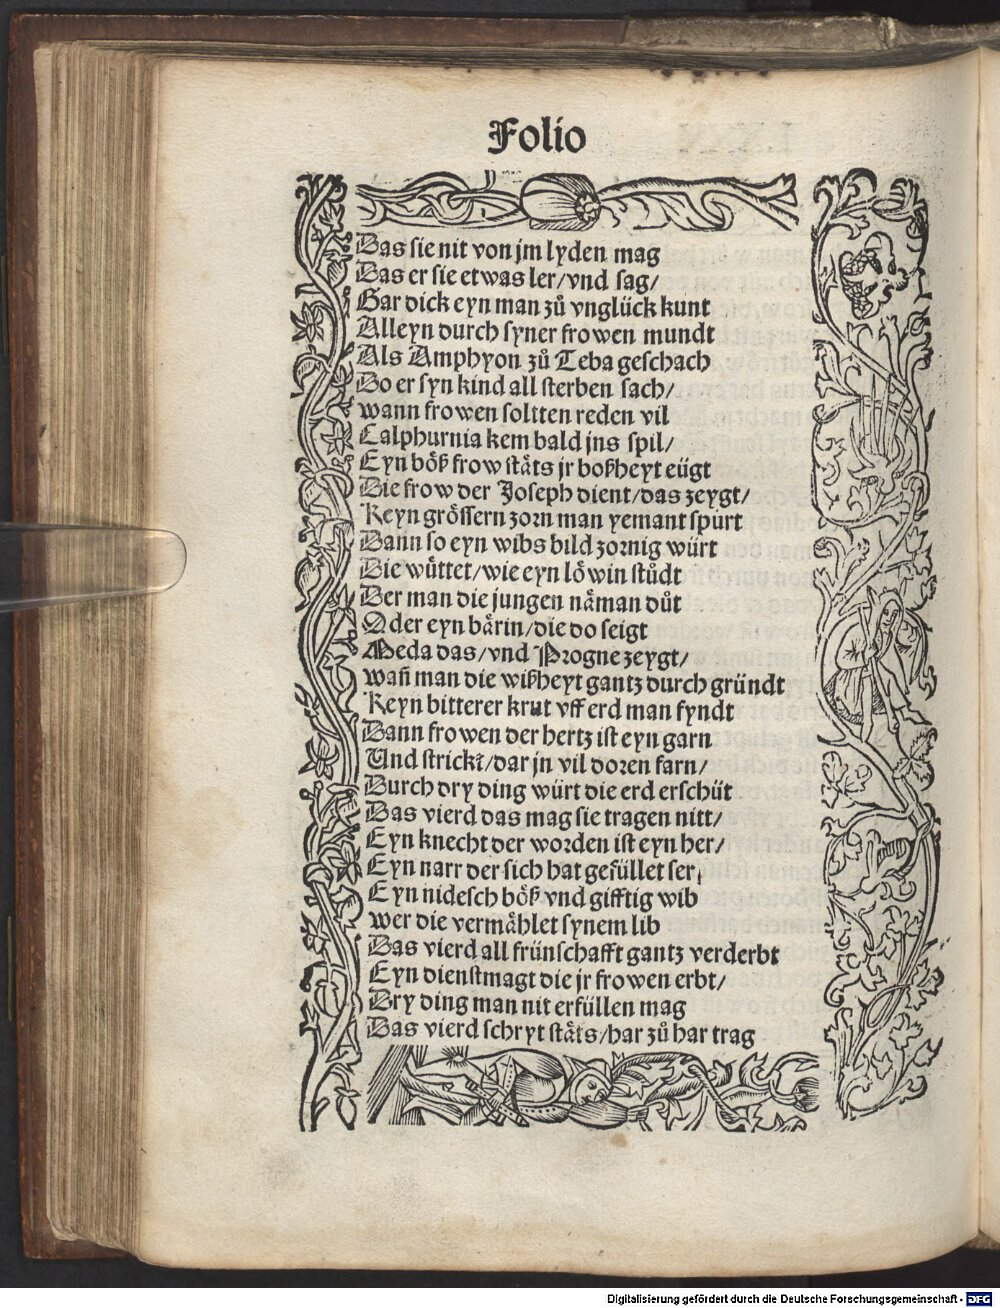 Folio
Das sie nit von jm lyden mag
Das er sie etwas ler/vnd sag/
Gar dick eyn man zů vnglück kunt
Alleyn durch syner frowen mundt
Als Amphyon zů Teba geschach
Do er syn kind all sterben sach/
wann frowen soltten reden vil
Calphurnia kem bald jns spil/
Eyn böß frow stäts jr boßheyt eügt
Die frow der Joseph dient/das zeygt/
Keyn grössern zorn man yemant spürt
Dann so eyn wibs bild zornig würt
Die wůttet/wie eyn löwin stůdt
Der man die jungen näman důt
Oder eyn bärin/die do seigt
Meda das/vnd Progne zeygt/
wañ man die wißheyt gantz durch gründt
Keyn bitterer krut vff erd man fyndt
Dann frowen der hertz ist eyn garn
Und strickt/dar jn vil doren farn/
Durch dry ding würt die erd erschüt
Das vierd das mag sie tragen nitt/
Eyn knecht der worden ist eyn her/
Eyn narr der sich hat gefüllet ser/
Eyn nidesch böß vnd gifftig wib
wer die vermählet synem lib
Das vierd all frünschafft gantz verderbt
Eyn dienstmagt die jr frowen erbt/
Dry ding man nit erfüllen mag
Das vierd schryt stäts/har zů har trag
Digitalisierung gefördert durch die Deutsche Forschungsgemeinschaft - DFG